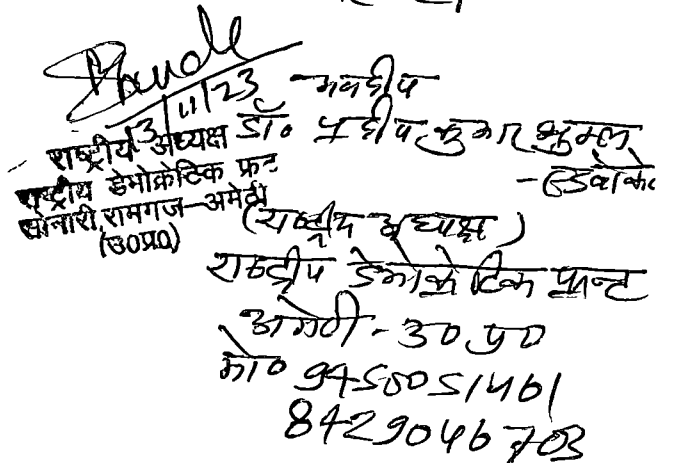 3/11/23
राष्ट्रीय अध्यक्ष
राष्ट्रीय डेमोक्रेटिक फ्रंट
सोनारी, रामगंज-अमेठी
(उ०प्र०)
भवदीय
डॉ० प्रदीप कुमार शुक्ल
-एडवोकेट
(राष्ट्रीय अध्यक्ष)
राष्ट्रीय डेमोक्रेटिक फ्रन्ट
अमेठी - उ० प्र०
मो० 9450051461
8429046703